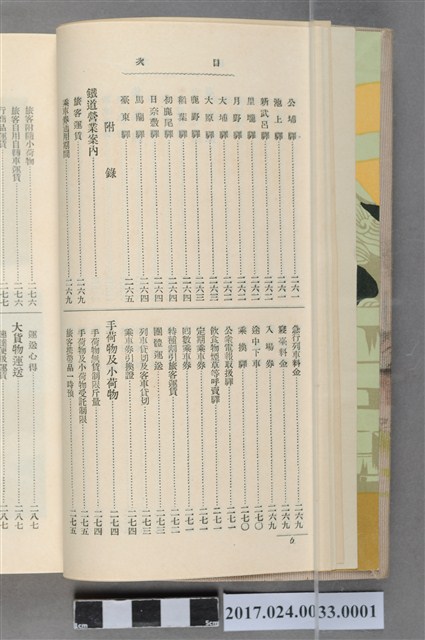 目次
公埔驛 二六一
池上驛 二六一
新武呂驛 二六一
里壠驛 二六一
月野驛
大埔驛
大原驛 二六三
鹿野驛 二六三
驛 二六四
初鹿尾驛 二六四
日奈敷驛 二六四
馬蘭驛 二六四
臺東驛 二六五
附錄
鐵道營業案內
旅客運賃 二六九
乘車券通用期間 二六九
急行列車料金 二六九
寢臺料金 二六九
入場券 二六九
途中下車 二七〇
乘換驛 二七〇
公衆電報取扱驛 二七一
飮食物煙草等呼賣驛 二七一
定期乘車券 二七一
回數乘車券 二七一
特種割引旅客運賃 二七二
團體運送 二七三
列車貸切及客車貸切 二七三
乘車券引換證 二七四
手荷物及小荷物 二七四
手荷物無賃制限斤量 二七四
手荷物及小荷物受託制限 二七五
旅客携帶品一時預 二七五
六
旅客附隨小荷物 二七六
旅客自用自轉車運賃
行商品運賃 二七七
運送心得 二八七
大貨物運送 二八七
5cm
5cm
2017.024.0033.0001